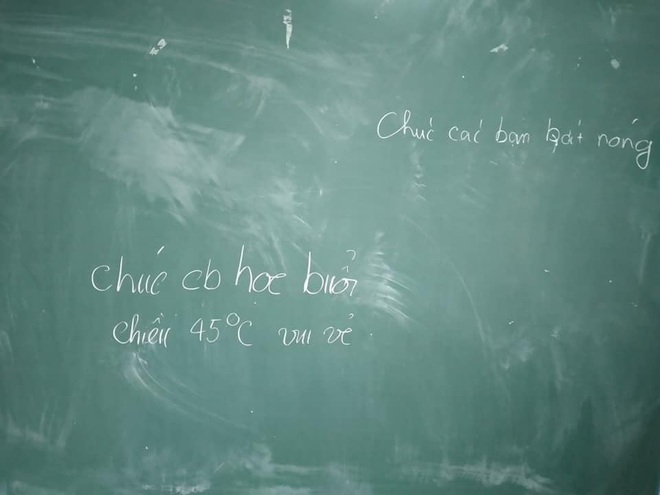 Chúc các bạn bớt nóng
chúc cb học buổi
chiều 45°C vui vẻ